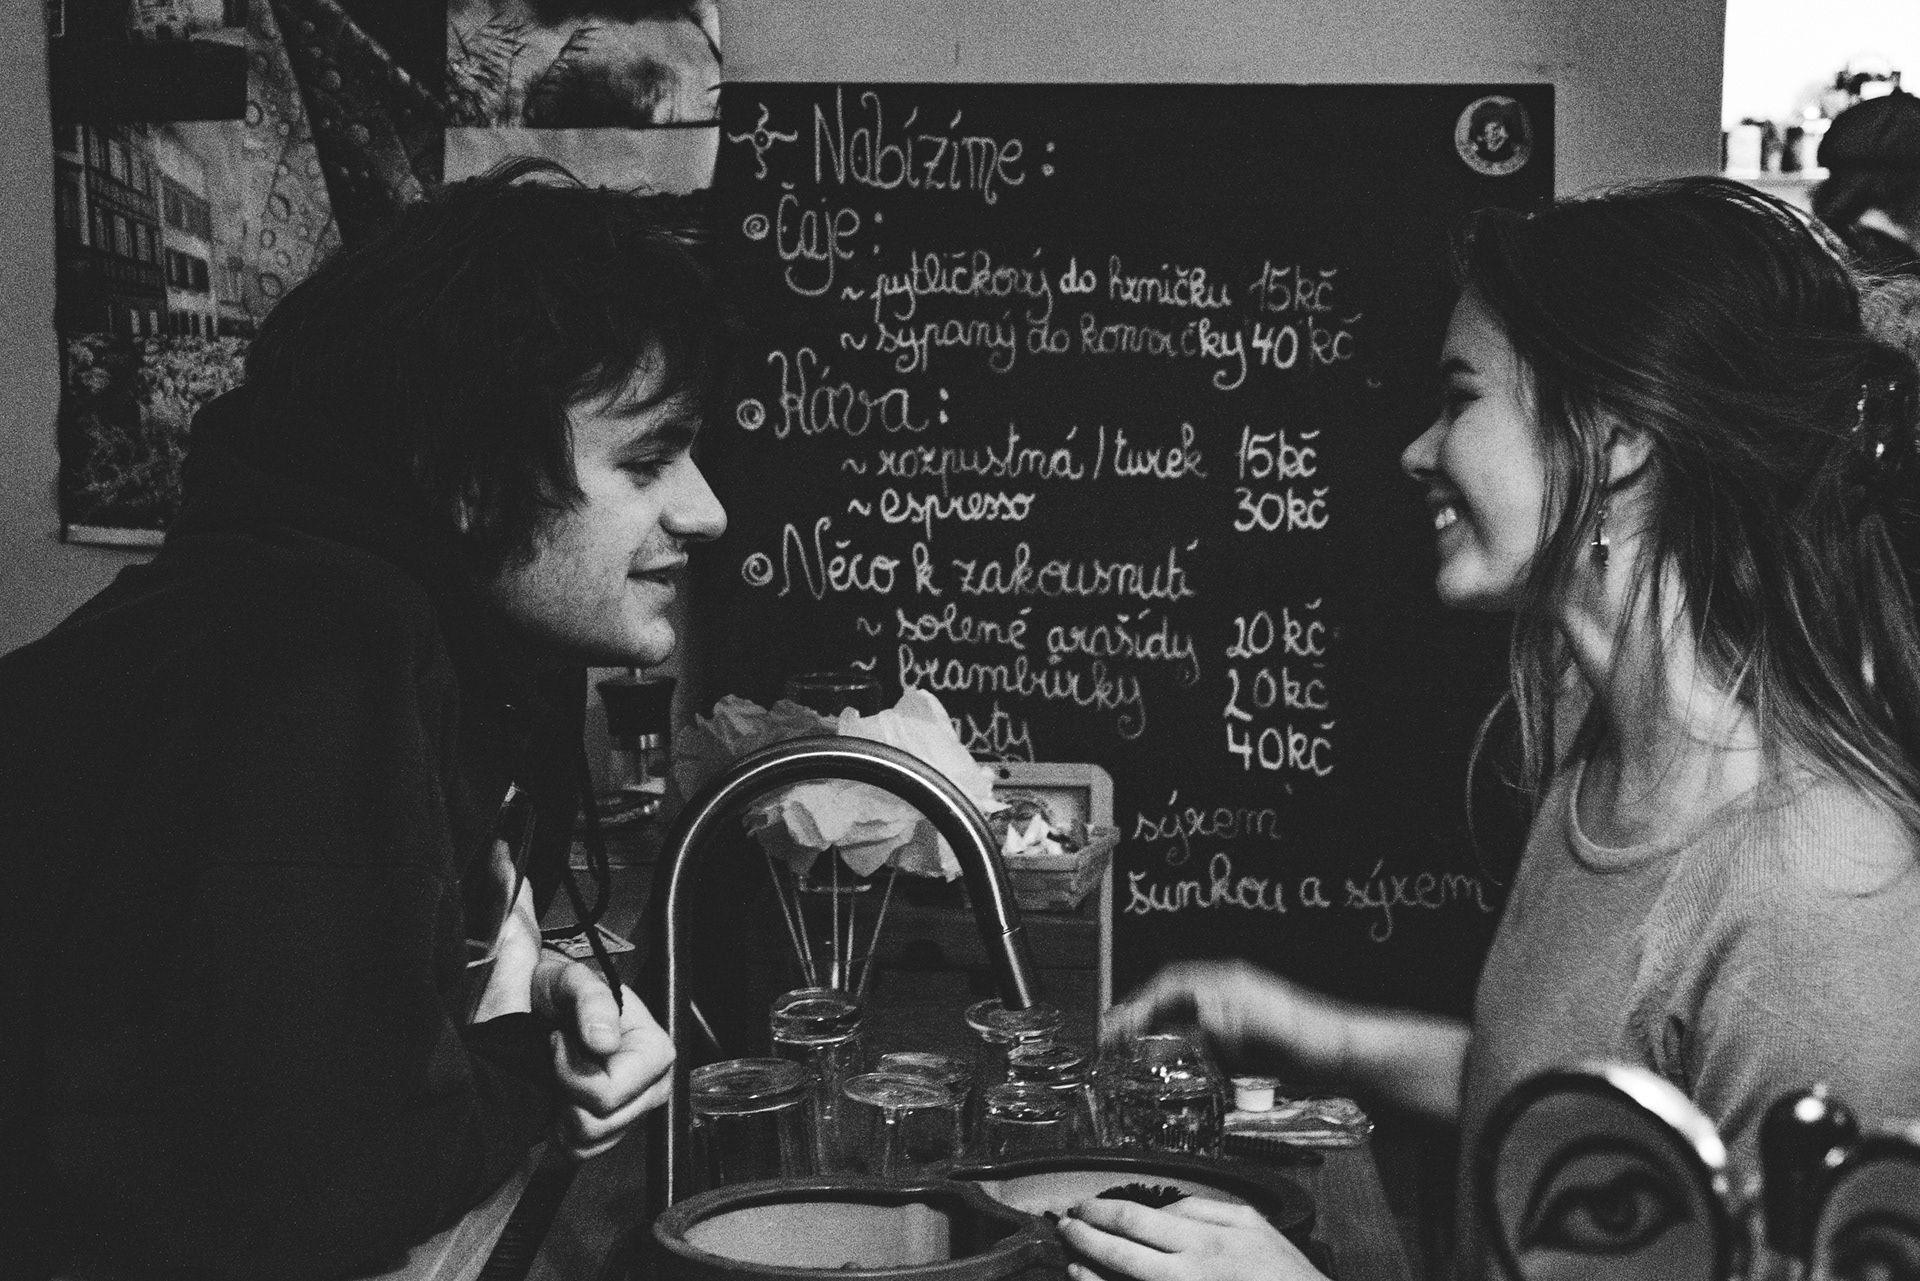 Nabízíme:
Čaje:
~ pytlíčkový do hrníčku 15kč
~ sypaný do konvičky 40 kč
Káva:
~ rozpustná / turek 15kč
~ espresso 30kč
Něco k zakousnutí
~ solené arašídy 20kč
~ brambůrky 20kč
40kč
sýrem
šunkou a sýrem